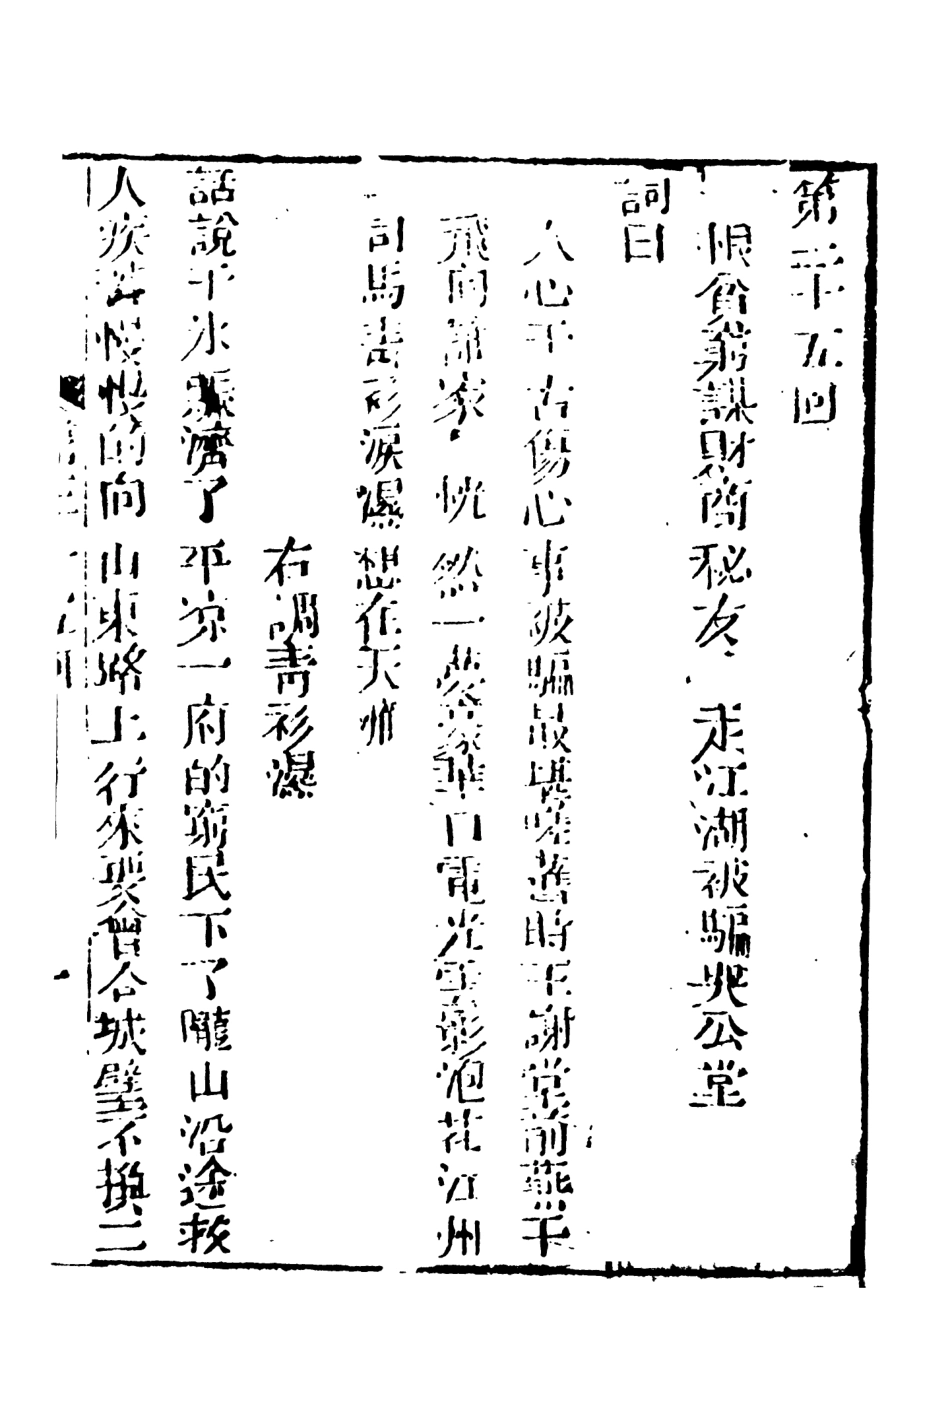 第二十五回
恨貧窮謀財商秘友 走江湖被騙哭公堂
詞曰
人心千古傷心事被騙最堪嗟舊時王謝堂前燕子
飛向誰家 恍然一夢豪華日電光雪影泡花江州
司馬青衫淚濕想在天涯
右調青衫濕
話說于冰賑濟了平凉一府的窮民下了隴山沿途救
人疾苦慢慢的向山東路上行來要會合城璧不換二